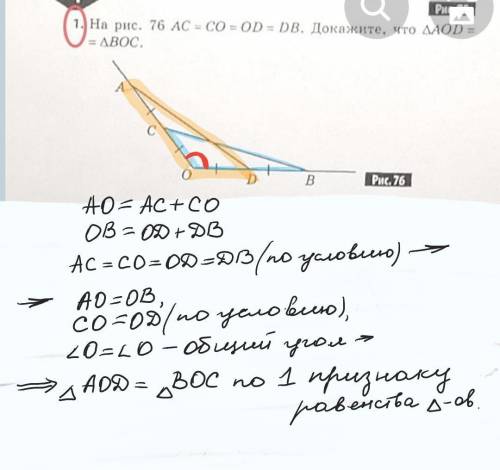 Рис
1. На рис. 76 AC = CO = OD = DB. Докажите, что △AOD =
= △BOC.
A
C
O
D
B
Рис. 76
AO = AC + CO
OB = OD + DB
AC = CO = OD = DB (по условию) →
→ AO = OB,
CO = OD (по условию),
∠O = ∠O – общий угол →
⇒ △AOD = △BOC по 1 признаку
равенства △-ов.